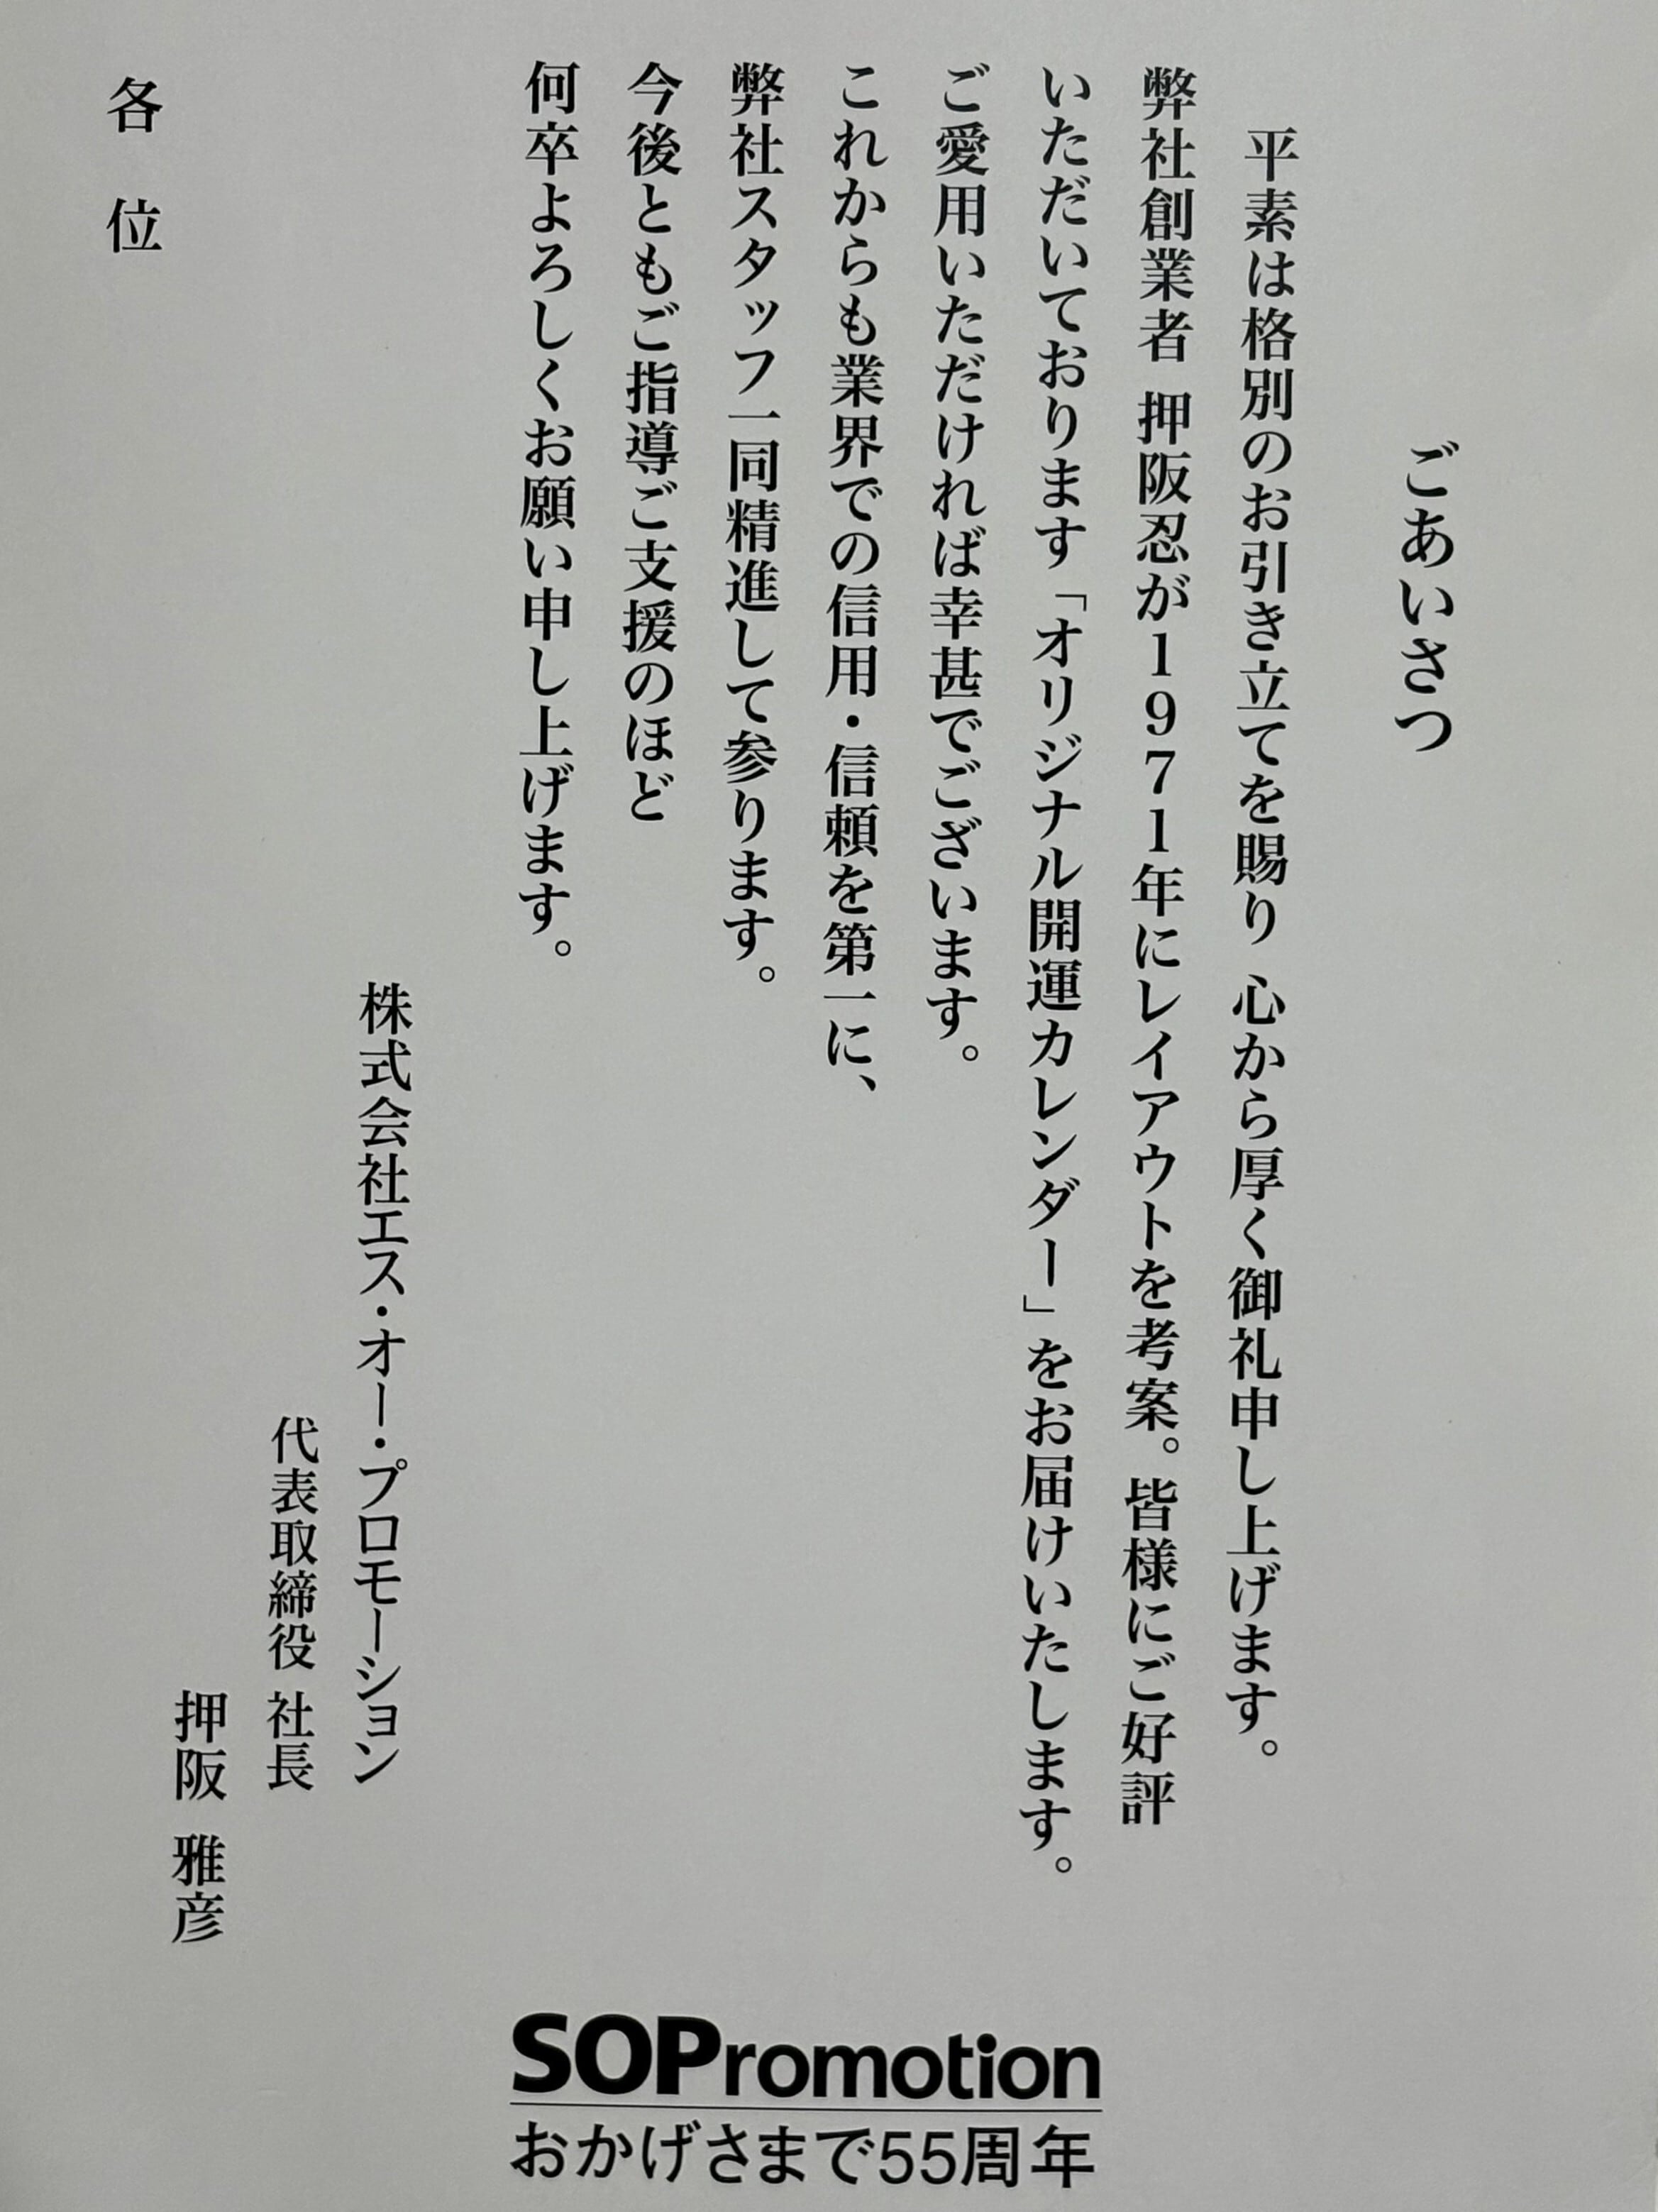 ごあいさつ
平素は格別のお引き立てを賜り 心から厚く御礼申し上げます。
弊社創業者 押阪忍が1971年にレイアウトを考案。皆様にご好評
いただいております「オリジナル開運カレンダー」をお届けいたします。
ご愛用いただければ幸甚でございます。
これからも業界での信用・信頼を第一に、
弊社スタッフ一同精進して参ります。
今後ともご指導ご支援のほど
何卒よろしくお願い申し上げます。
株式会社エス・オー・プロモーション
代表取締役 社長
押阪 雅彦
各 位
SOPromotion
おかげさまで55周年